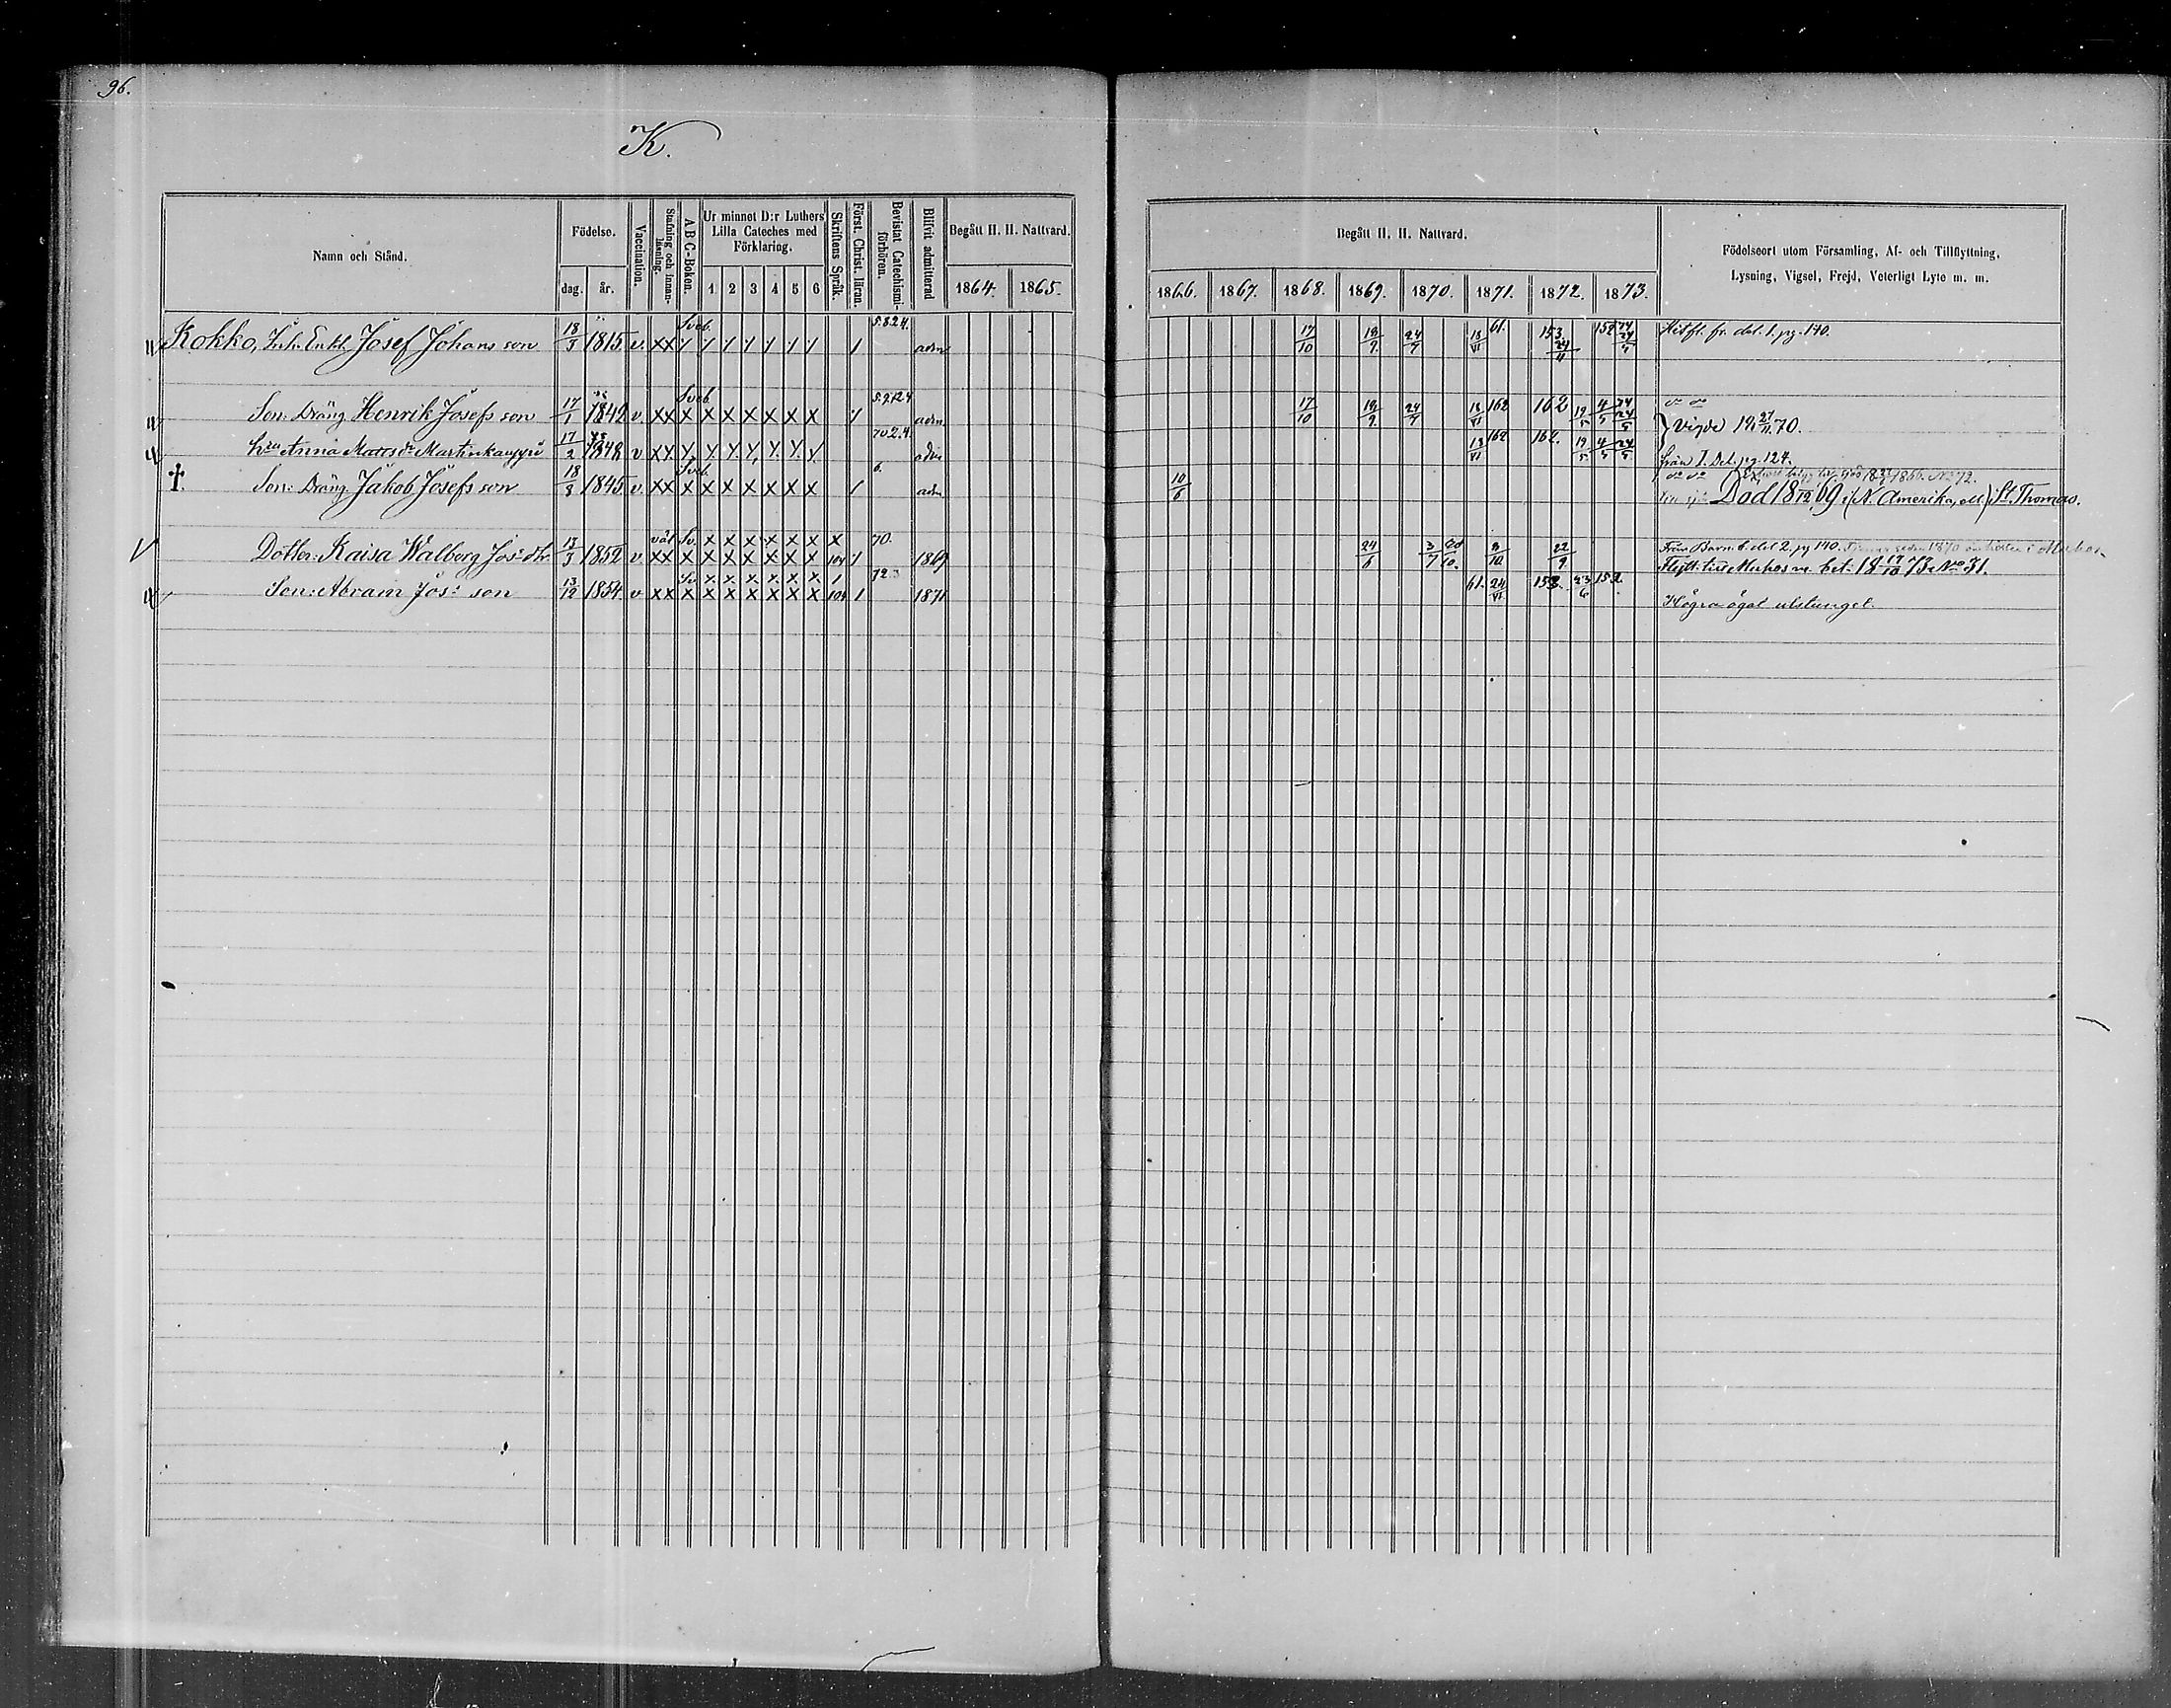 96.
K.
Namn och Stånd.
Födelse.
dag.
år.
Vaccination.
Stafning och innanläsning.
A B C-Boken.
Ur minnet D:r Luthers Lilla Cateches med Förklaring.
1 2 3 4 5 6
Skriftens Språk.
Först. Christ. läran.
Bevistat Catechismiförhören.
Blifvit admitterad
Begått H. H. Nattvard.
1864. 1865.
Begått H. H. Nattvard.
1866. 1867. 1868. 1869. 1870. 1871. 1872. 1873.
Födelseort utom Församling, Af- och Tillflyttning,
Lysning, Vigsel, Frejd, Veterligt Lyte m. m.
Kokko, Josef Johans son 18/3 1815 v. xx Sveb. 5.8.2.4. adm 17/10 19/9. 24/7 18/VI 61. 153 Hitfl. fr. del. 1. pg. 140.
Son: Dräng Henrik Josefs son 17/1 1842 v. xx Sveb. x x x x x x x 5.9.12.4 adm 17/10 19/9. 24/7 18/VI 162 162 19/5 4/5 24/5 Vigde 18 27/11 70.
hru Anna Matts dr Martinkauppi 17/2 1848 v 70.2.4. adm 18/VI 162 162. 19/5 4/5 från I. Del. pg. 124.
Son: Dräng Jakob Josefs son 18/8 1845 v. xx Sveb. x x x x x x x 6. adm 10/6 1866. No 72.
Död 18 69 i (N. Amerika, St. Thomas.
Dotter: Kaisa Walborg Jos: dtr. 13/3 1852 v. väl Sv. x x x x x x x 104 70. 1869 24/6 3/7 8/10 22/9 Från Barnb. del 2. pg 140.
Flytt. till Muhos m. bet: 18 17/10 73 No 31.
Son: Abram Jos: son 13/12 1854. v xx Sv x x x x x x 104 1 72 1871 61. 24/VI 153. 23/6 152. Högra ögat utstunget.